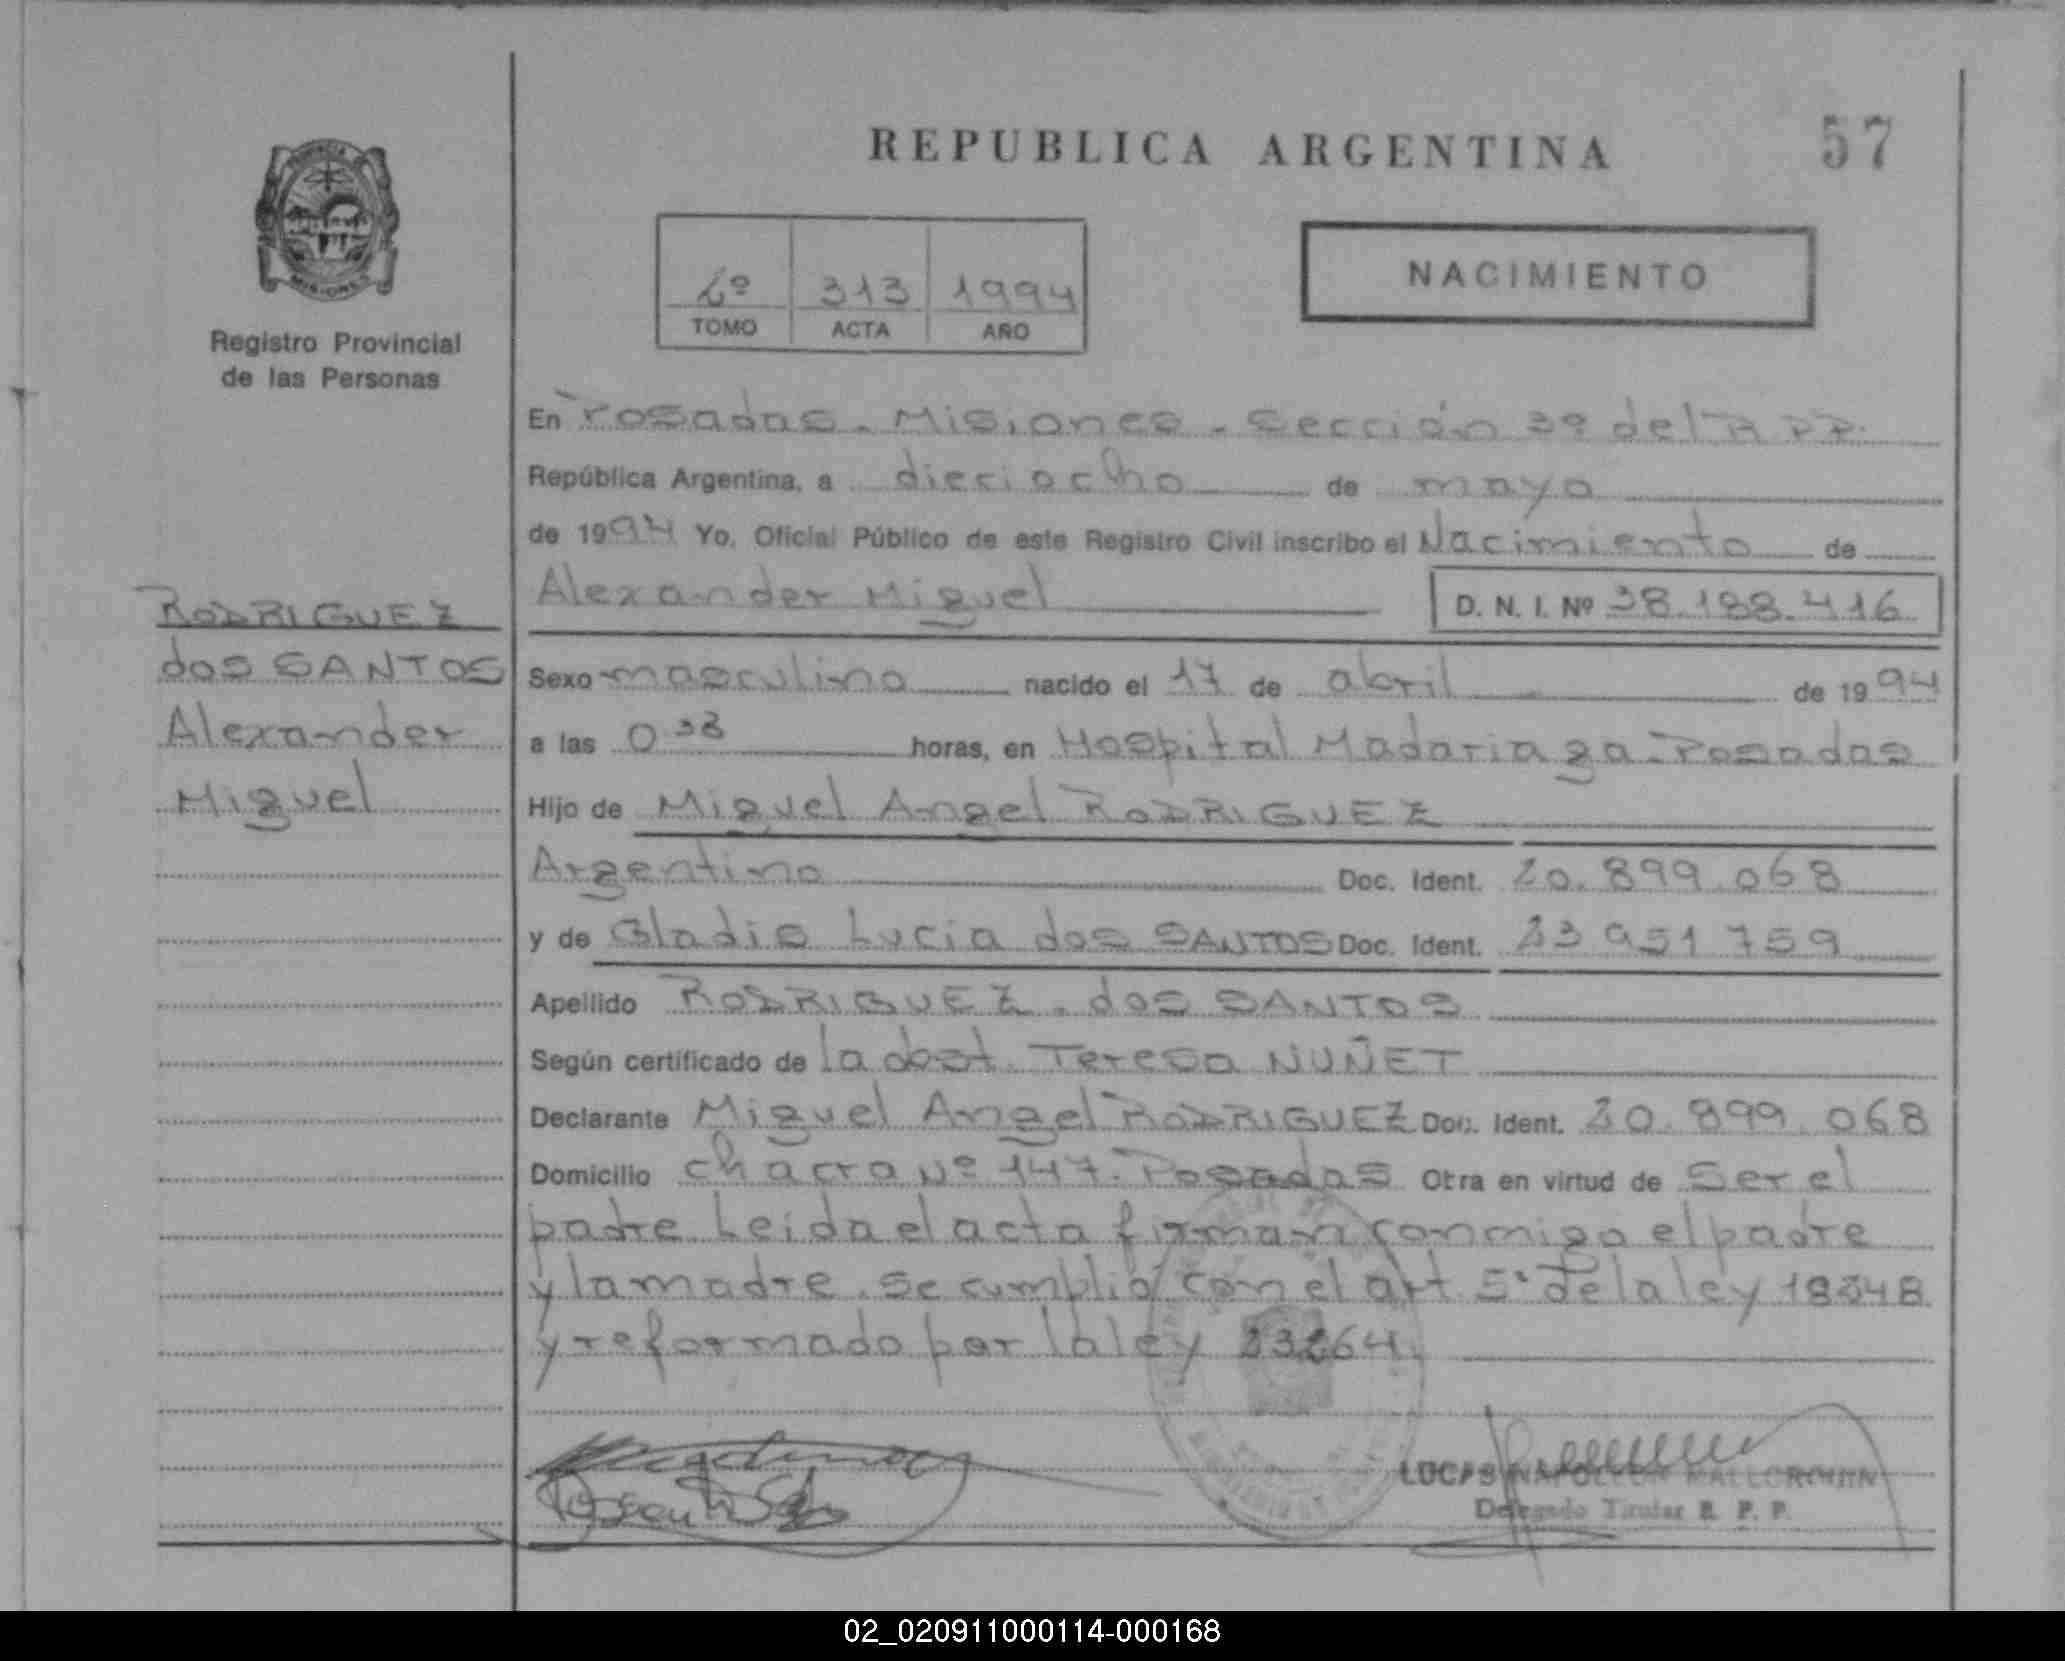 REPUBLICA ARGENTINA
57
PROVINCIA
MISIONES
Registro Provincial
de las Personas
2º 313 1994
TOMO ACTA AÑO
NACIMIENTO
En Posadas - Misiones - Sección 3º del R.P.P.
República Argentina, a dieciocho de mayo
de 1994 Yo, Oficial Público de este Registro Civil inscribo el Nacimiento de
Alexander Miguel
D. N. I. Nº 38.188.416
RODRIGUEZ
dos SANTOS
Alexander
Miguel
Sexo masculino nacido el 17 de abril de 1994
a las 0 38 horas, en Hospital Madariaga - Posadas
Hijo de Miguel Angel RODRIGUEZ
Argentino Doc. Ident. 20.899.068
y de Gladis Lucia dos SANTOS Doc. Ident. 23.951.759
Apellido RODRIGUEZ - dos SANTOS
Según certificado de la obst. Teresa NUÑET
Declarante Miguel Angel RODRIGUEZ Doc. Ident. 20.899.068
Domicilio chacra Nº 147. Posadas Otra en virtud de ser el
padre. Leida el acta firman conmigo el padre
y la madre. se cumplió con el art. 5º de la ley 18248
y reformado por la ley 23264.
LUCAS NAPOLEON MALLORQUIN
Delegado Titular R. P. P.
02_020911000114-000168